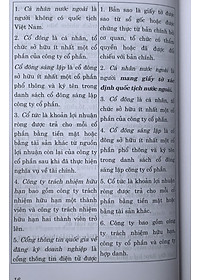 1. Cá nhân nước ngoài là
người không có quốc tịch
Việt Nam.
2. Cổ đông là cá nhân, tổ
chức sở hữu ít nhất một cổ
phần của công ty cổ phần.
Cổ đông sáng lập là cổ đông
sở hữu ít nhất một cổ phần
phổ thông và ký tên trong
danh sách cổ đông sáng lập
công ty cổ phần.
3. Cổ tức là khoản lợi nhuận
ròng được trả cho mỗi cổ
phần bằng tiền mặt hoặc
bằng tài sản khác từ nguồn
lợi nhuận còn lại của công ty
cổ phần sau khi đã thực hiện
nghĩa vụ về tài chính.
4. Công ty trách nhiệm hữu
hạn bao gồm công ty trách
nhiệm hữu hạn một thành
viên và công ty trách nhiệm
hữu hạn hai thành viên trở
lên.
5. Cổng thông tin quốc gia về
đăng ký doanh nghiệp là
cổng thông tin điện tử được
16
1. Bản sao là giấy tờ được
sao từ sổ gốc hoặc được
chứng thực từ bản chính bởi
cơ quan, tổ chức có thẩm
quyền hoặc đã được đối
chiếu với bản chính.
2. Cá nhân nước ngoài là
người mang giấy tờ xác
định quốc tịch nước ngoài.
3. Cổ đông là cá nhân, tổ
chức sở hữu ít nhất một cổ
phần của công ty cổ phần.
4. Cổ đông sáng lập là cổ đông
sở hữu ít nhất một cổ phần
phổ thông và ký tên trong
danh sách cổ đông sáng lập
công ty cổ phần.
5. Cổ tức là khoản lợi nhuận
ròng được trả cho mỗi cổ
phần bằng tiền mặt hoặc
bằng tài sản khác.
6. Công ty bao gồm công ty
trách nhiệm hữu hạn, công
ty cổ phần và công ty
hợp danh.